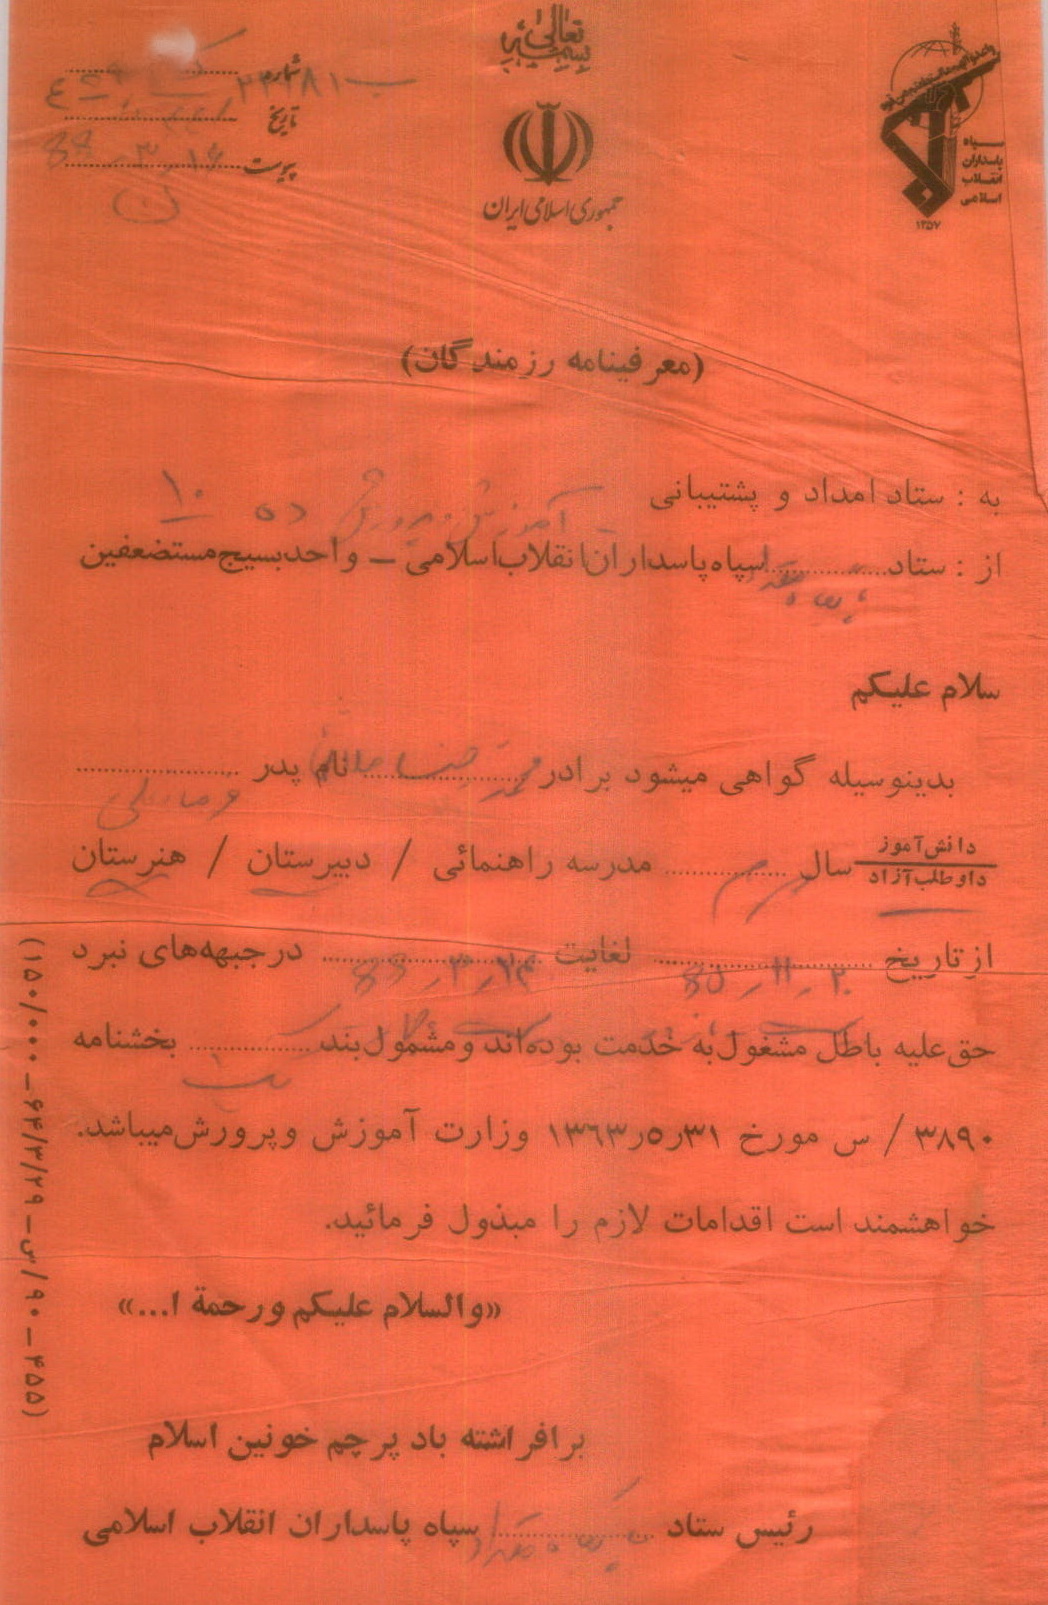 بسمه تعالی
شماره ۲۲۲۸۱ ب
تاریخ
پیوست
جمهوری اسلامی ایران
سپاه
پاسداران
انقلاب
اسلامی
۱۳۵۷
(معرفینامه رزمندگان)
به : ستاد امداد و پشتیبانی آموزش و پرورش ده ۱۰
از : ستاد سپاه پاسداران انقلاب اسلامی – واحد بسیج مستضعفین
سلام علیکم
بدینوسیله گواهی میشود برادر محمدرضا نام پدر
دانش‌آموز
داوطلب آزاد
سال مدرسه راهنمائی / دبیرستان / هنرستان
از تاریخ لغایت در جبهه‌های نبرد
حق علیه باطل مشغول به خدمت بوده‌اند و مشمول بند بخشنامه
۳۸۹۰ / س مورخ ۳۱ر۵ر۱۳۶۳ وزارت آموزش و پرورش میباشد.
خواهشمند است اقدامات لازم را مبذول فرمائید.
«والسلام علیکم ورحمة ا...»
برافراشته باد پرچم خونین اسلام
رئیس ستاد سپاه پاسداران انقلاب اسلامی
(۱۵۰/۰۰۰ – ۶۴/۳/۲۹ – س/۹۰ – ۴۵۵)